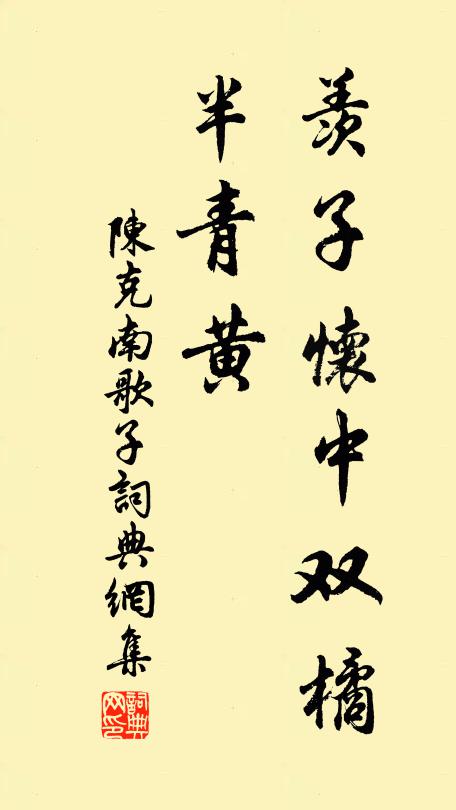 羨子懷中双橘
半青黄
陳克南歌子詞典網集
詞典
网印